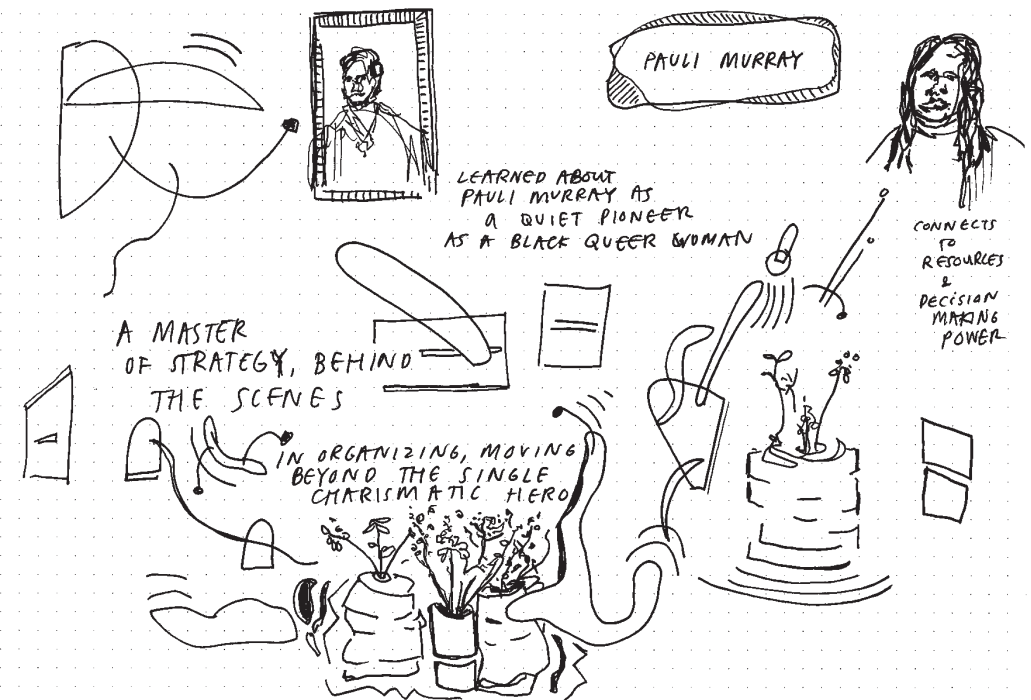 PAULI MURRAY
LEARNED ABOUT
PAULI MURRAY AS
A QUIET PIONEER
AS A BLACK QUEER WOMAN
CONNECTS
TO
RESOURCES
&
DECISION
MAKING
POWER
A MASTER
OF STRATEGY, BEHIND
THE SCENES
IN ORGANIZING, MOVING
BEYOND THE SINGLE
CHARISMATIC HERO